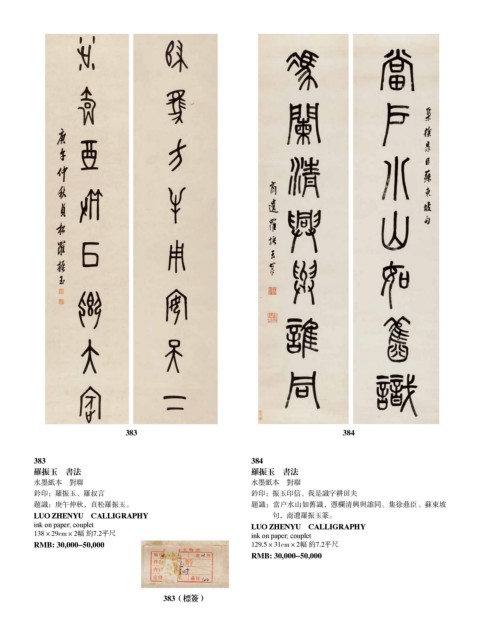 庚午仲秋貞松羅振玉
當戶小山如舊識
集徐鼎臣蘇東坡句
馮闌清興與誰同
商遺羅振玉篆
383
384
383
羅振玉 書法
水墨紙本 對聯
鈐印：羅振玉、羅叔言
題識：庚午仲秋，貞松羅振玉。
LUO ZHENYU CALLIGRAPHY
ink on paper; couplet
138 × 29cm × 2幅 約7.2平尺
RMB: 30,000-50,000
383（標簽）
384
羅振玉 書法
水墨紙本 對聯
鈐印：振玉印信、我是識字耕田夫
題識：當户水山如舊識，憑欄清興與誰同。集徐鼎臣、蘇東坡
句，商遺羅振玉篆。
LUO ZHENYU CALLIGRAPHY
ink on paper; couplet
129.5 × 31cm × 2幅 約7.2平尺
RMB: 30,000-50,000